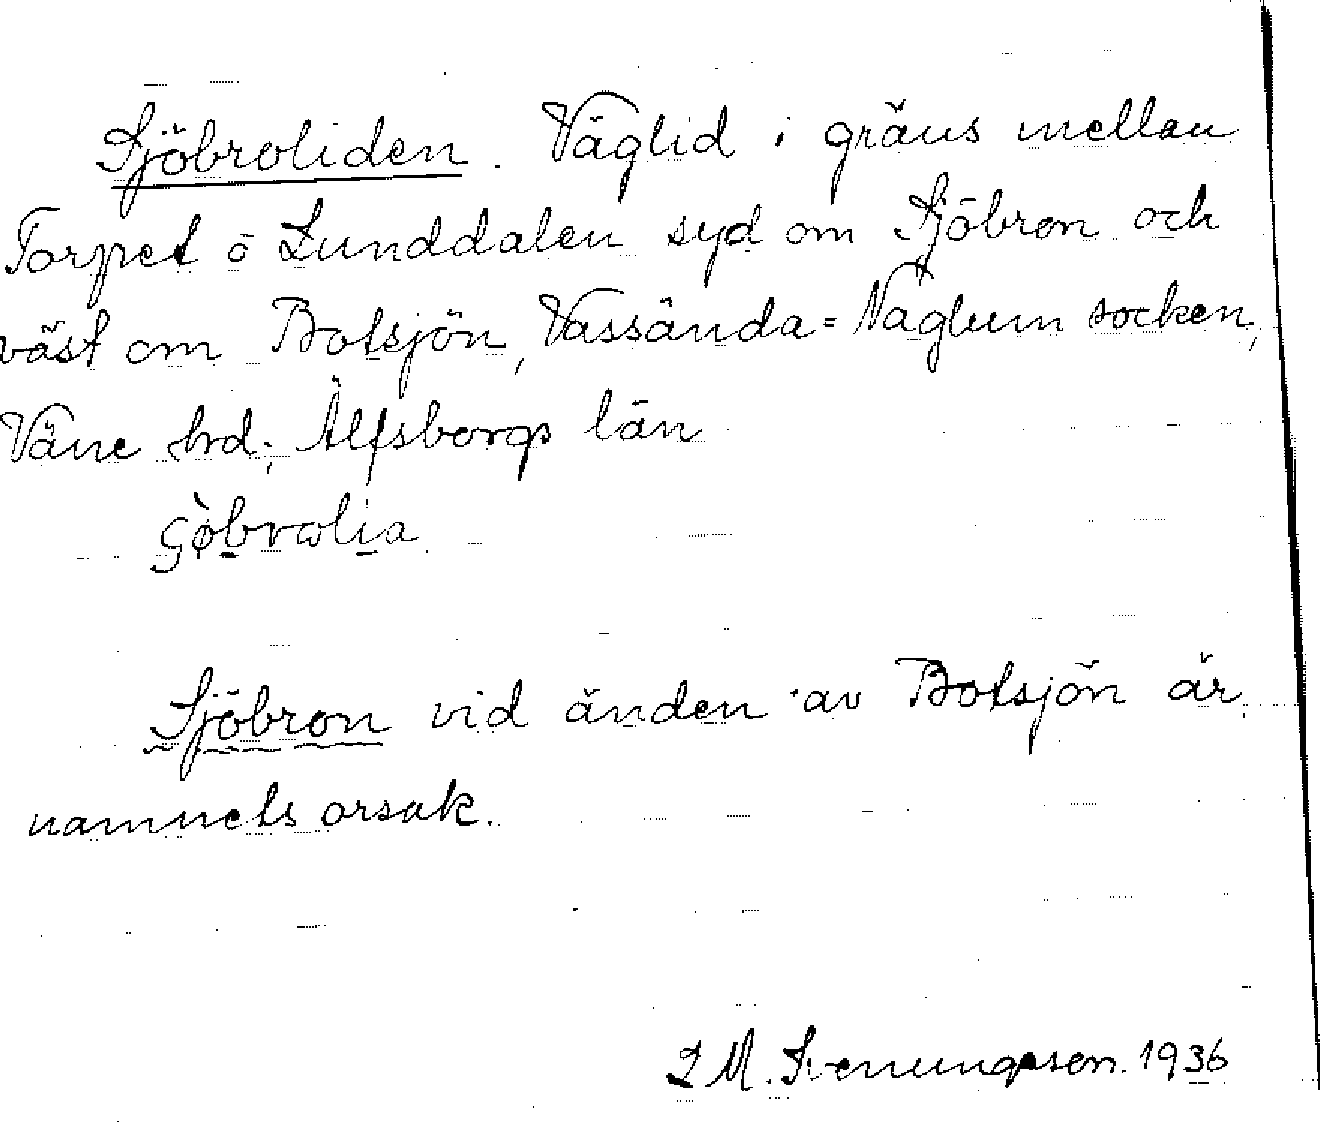 Sjöbroliden. Väglid i gräns mellan
Torpet o Lunddalen syd om Sjöbron och
väst om Botsjön, Vassända=Naglum socken,
Väne hrd; Älfsborgs län
Sjöbron vid änden av Botsjön är
namnets orsak.
L M. Svenungsson. 1936